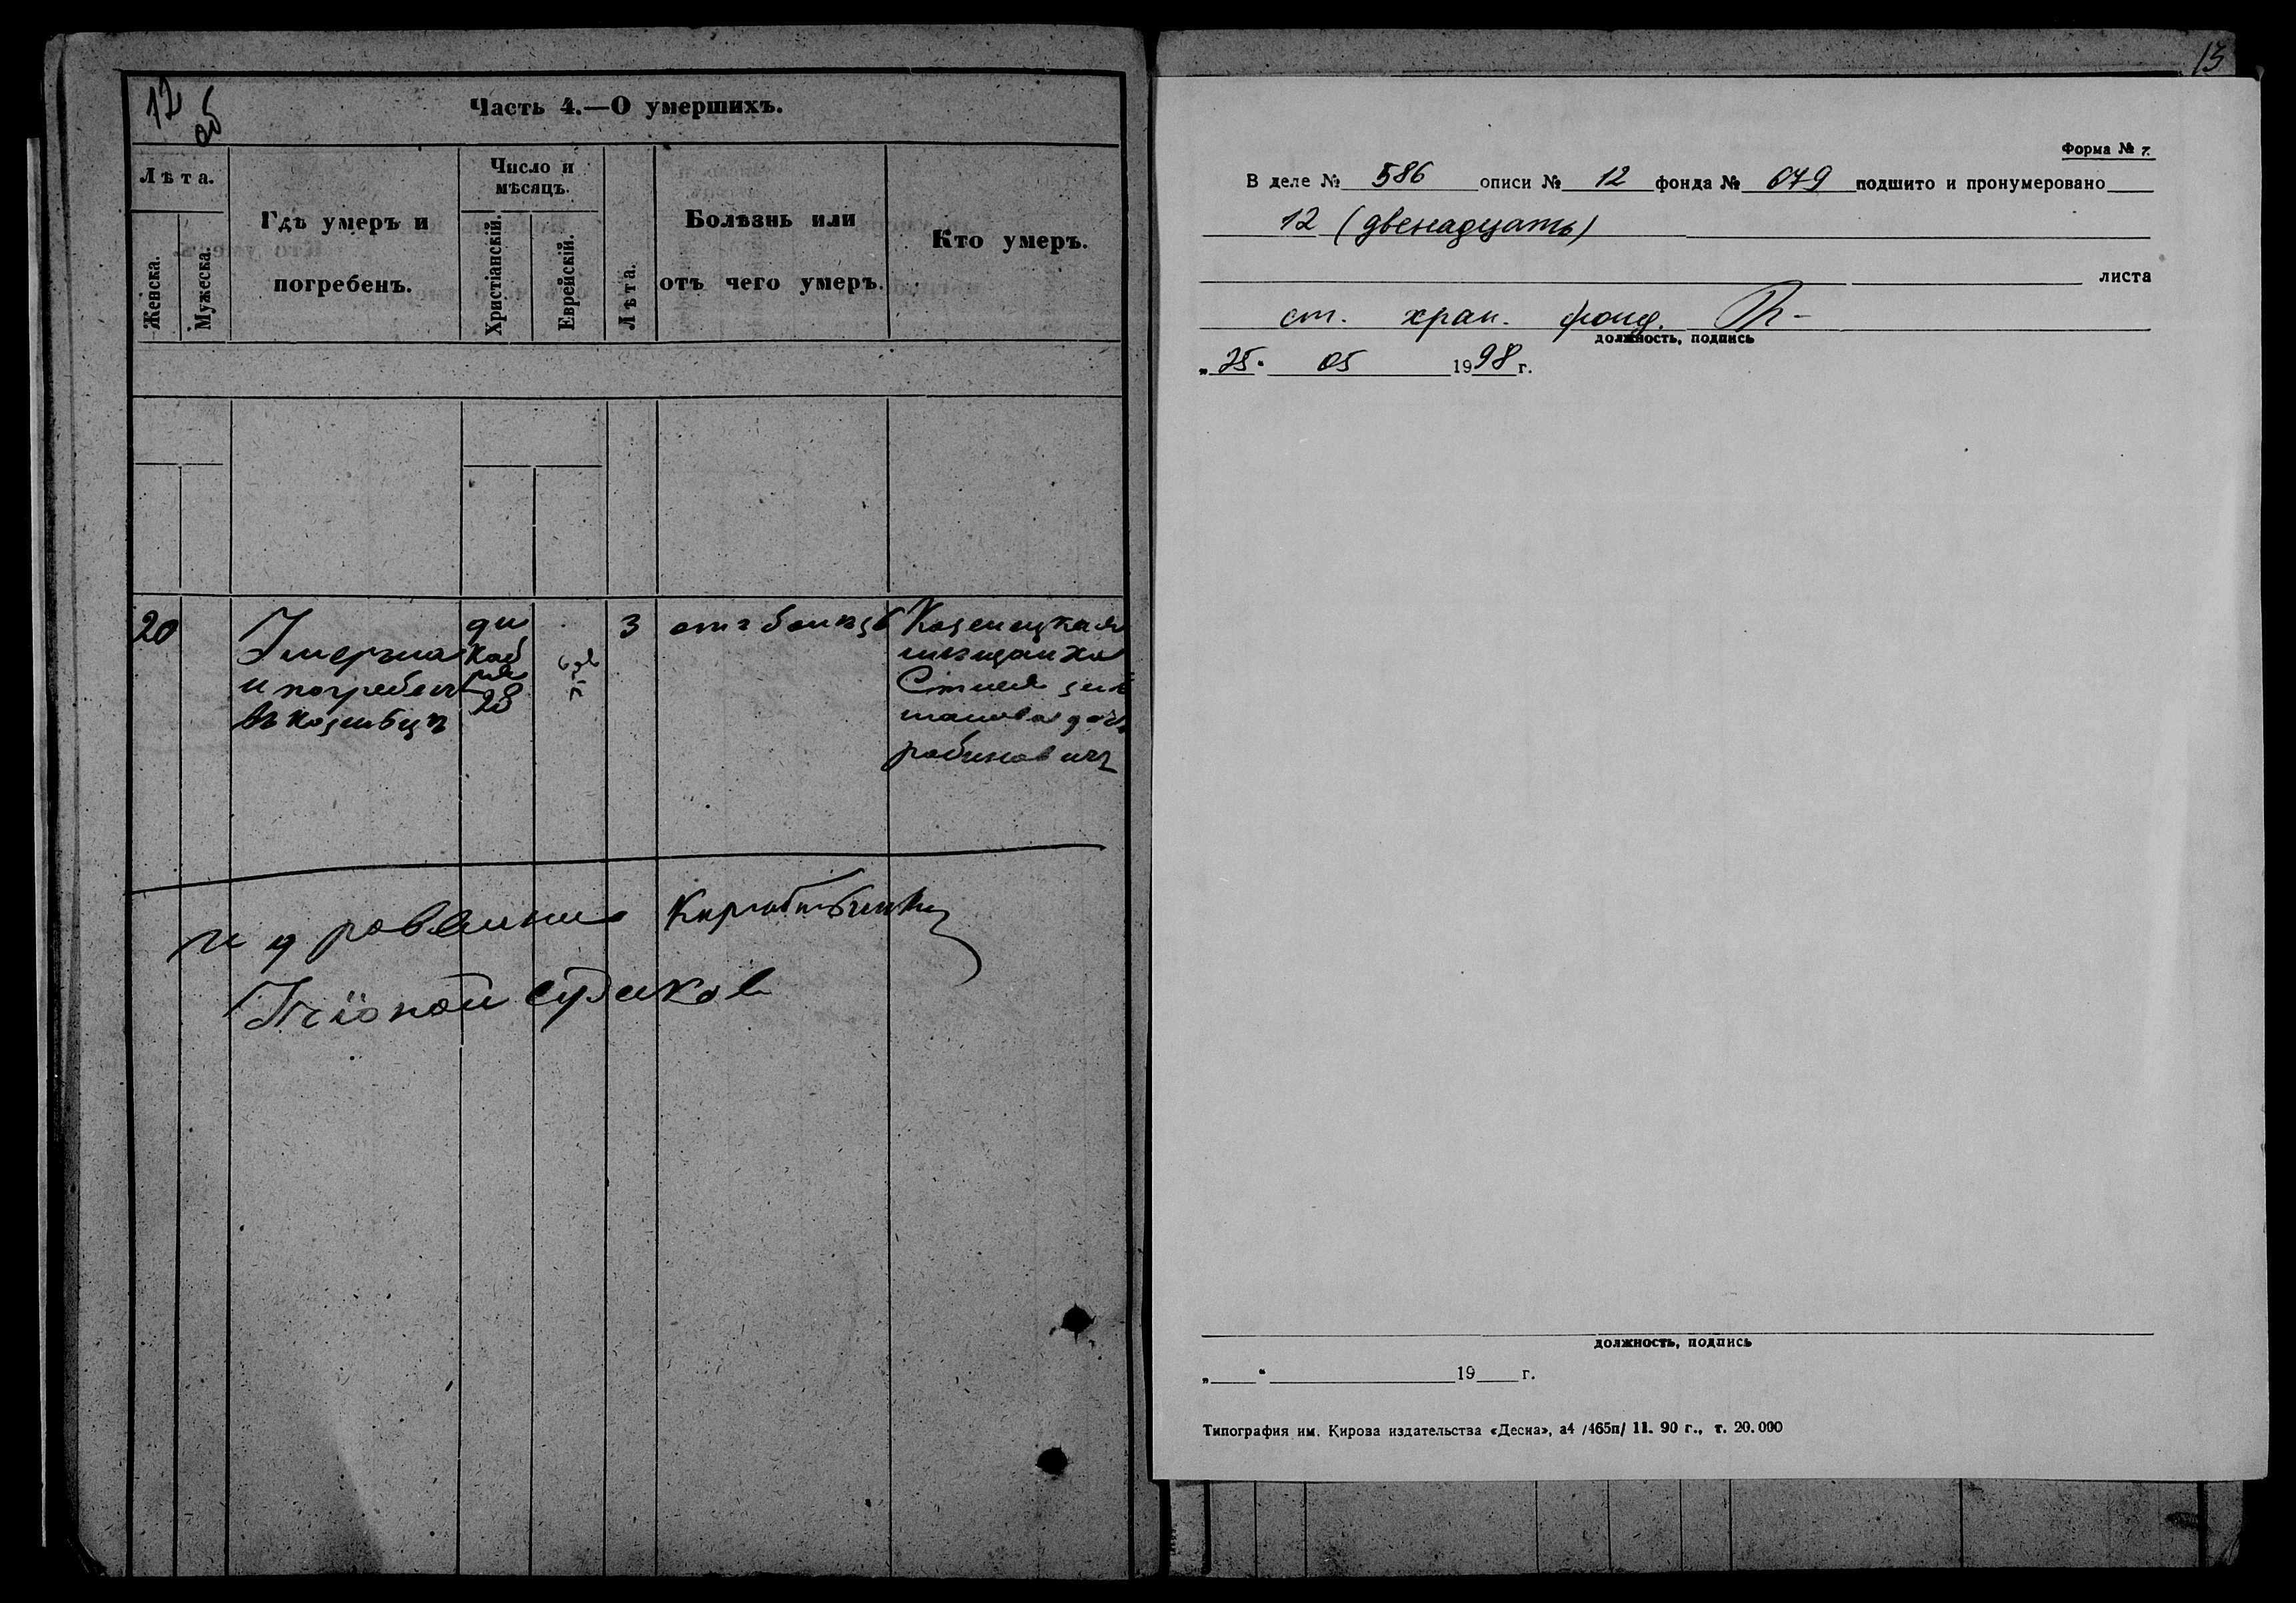 12 об
Часть 4.—О умершихъ.
Лѣта.
Женска.
Мужеска.
Гдѣ умеръ и
погребенъ.
Число и
мѣсяцъ.
Христіанскій.
Еврейскій.
Лѣта.
Болѣзнь или
отъ чего умеръ.
Кто умеръ.
20
Умеръла
и погребен
въ козельцѣ
де
каб
ря
28
3
Козелецкая
мѣщанка
дочь
рабинович
13
Форма № 7.
В деле № 586 описи № 12 фонда № 679 подшито и пронумеровано
12 (двенадцать)
листа
ст. хран. фонд.
должность, подпись
„25“ 05 1998 г.
должность, подпись
„ “ 19 г.
Типография им. Кирова издательства «Десна», а4 /465п/ 11. 90 г., т. 20.000